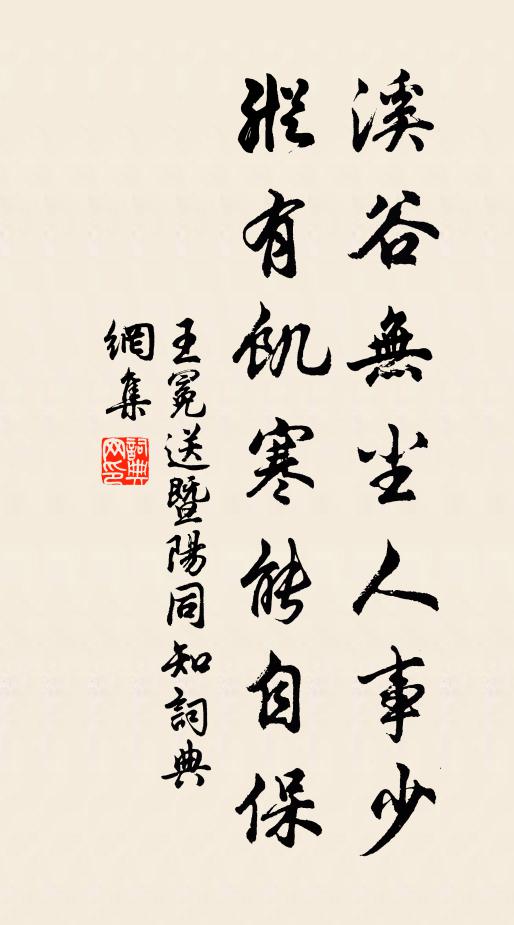 溪谷無尘人事少
縱有飢寒能自保
王冕送暨陽同知詞典
網集
詞典
网印